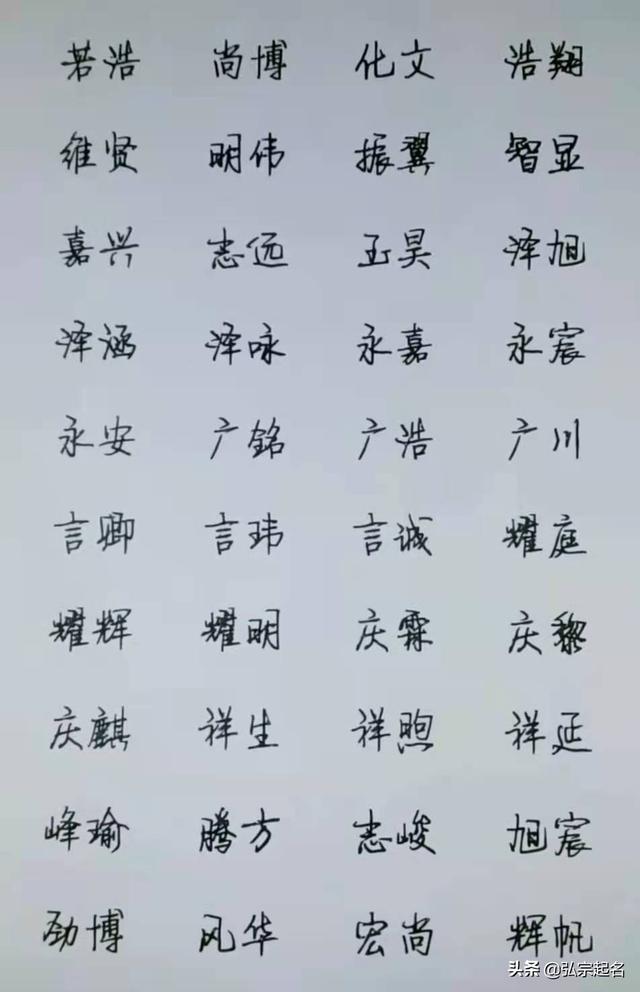 若浩 尚博 化文 浩翔
维贤 明伟 振翼 智显
嘉兴 志远 玉昊 泽旭
泽涵 泽咏 永嘉 永宸
永安 广铭 广浩 广川
言卿 言玮 言诚 耀庭
耀辉 耀明 庆霖 庆黎
庆麒 祥生 祥煦 祥延
峰瑜 腾方 志峻 旭宸
劲博 风华 宏尚 辉帆
头条 @弘宗起名